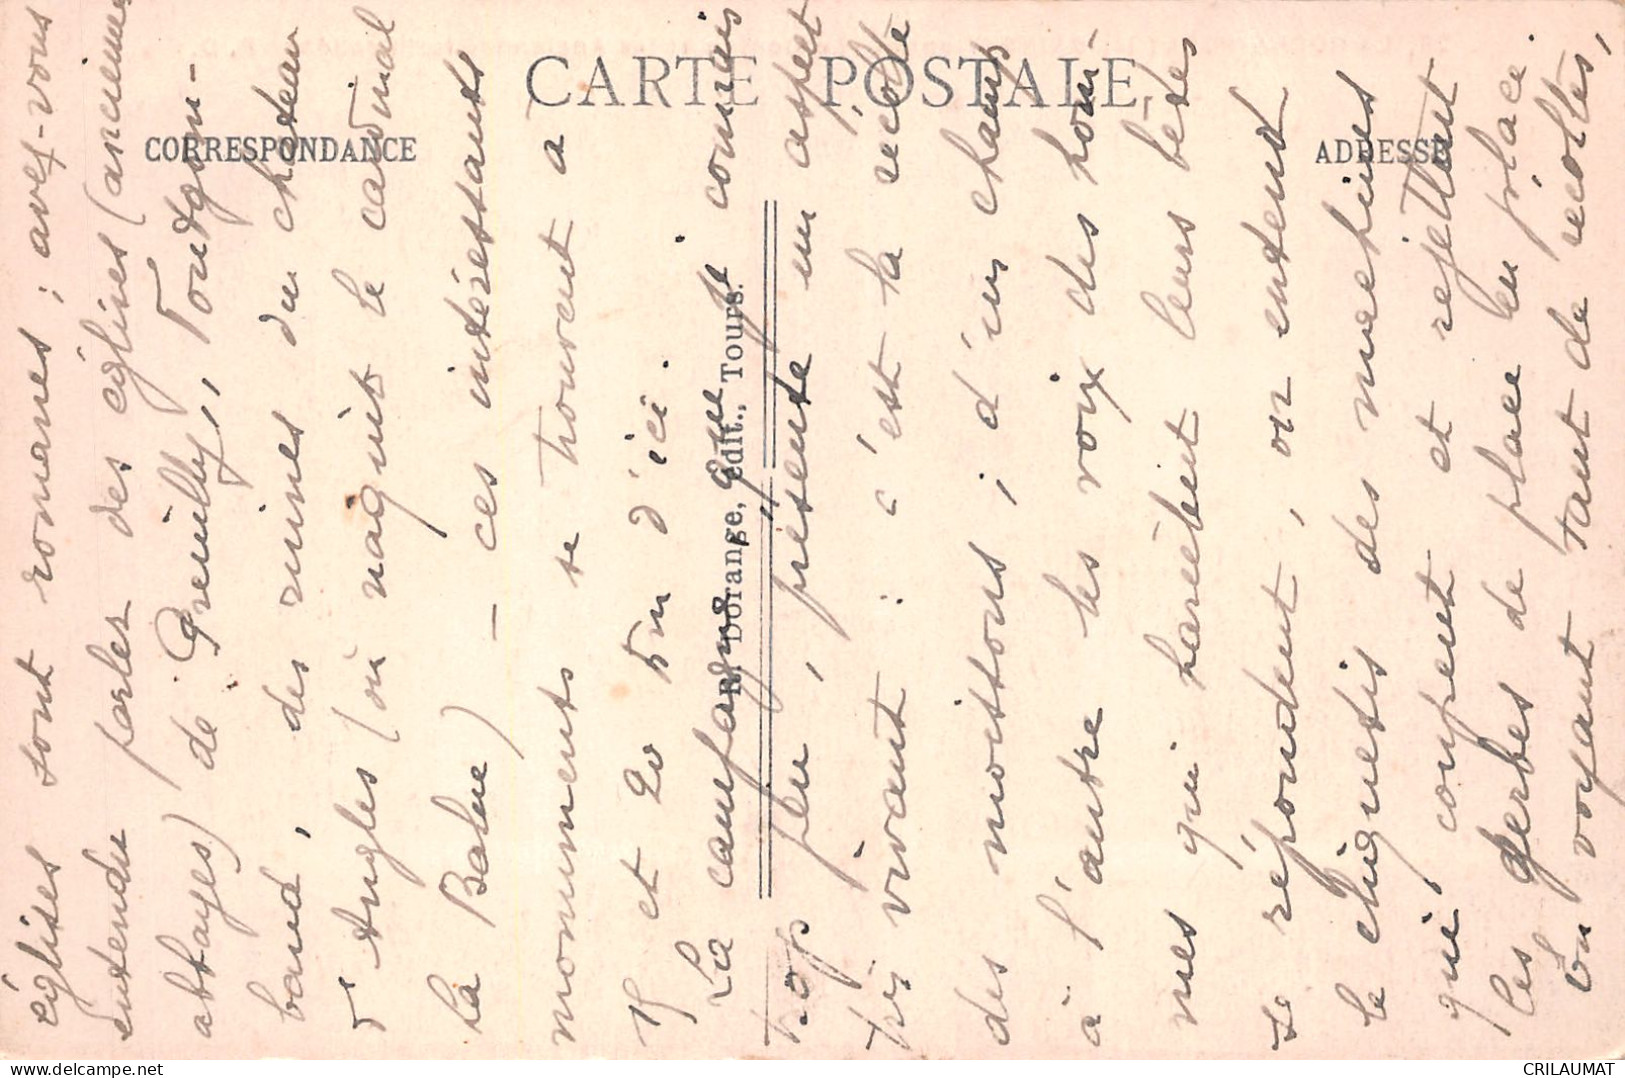 CARTE POSTALE
CORRESPONDANCE
ADRESSE
R. Dorange, édit., Tours.
églises sont romanes ; avez-vous
entendu parler des églises (anciennes
abbayes) de Preuilly, Fontgom-
baud, des ruines du château
d'Angles (où naquit le cardinal
La Balue) – ces intéressants
monuments se trouvent à
15 et 20 km d'ici.
La campagne, que je connais
trop peu, présente un aspect
très vivant : c'est la récolte
des moissons ; d'un champ
à l'autre les voix des hom-
mes qui harcèlent leurs bêtes
se répondent, on entend
le cliquetis des machines
qui coupent et rejettent
les gerbes de place en place
En voyant tant de récoltes,
CRILAUMAT